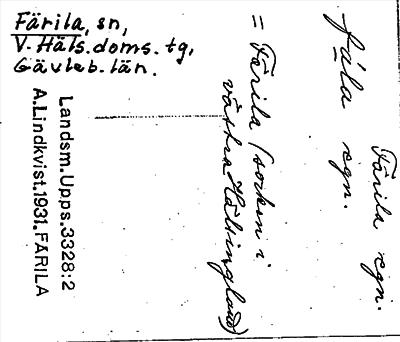 Färila, sn,
V. Häls. doms. tg,
Gävleb. län.
Färila sgn.
fála sgn.
= Färila (socken i
västra Hälsingland)
Landsm. Upps. 3328:2
A. Lindkvist. 1931. FÄRILA